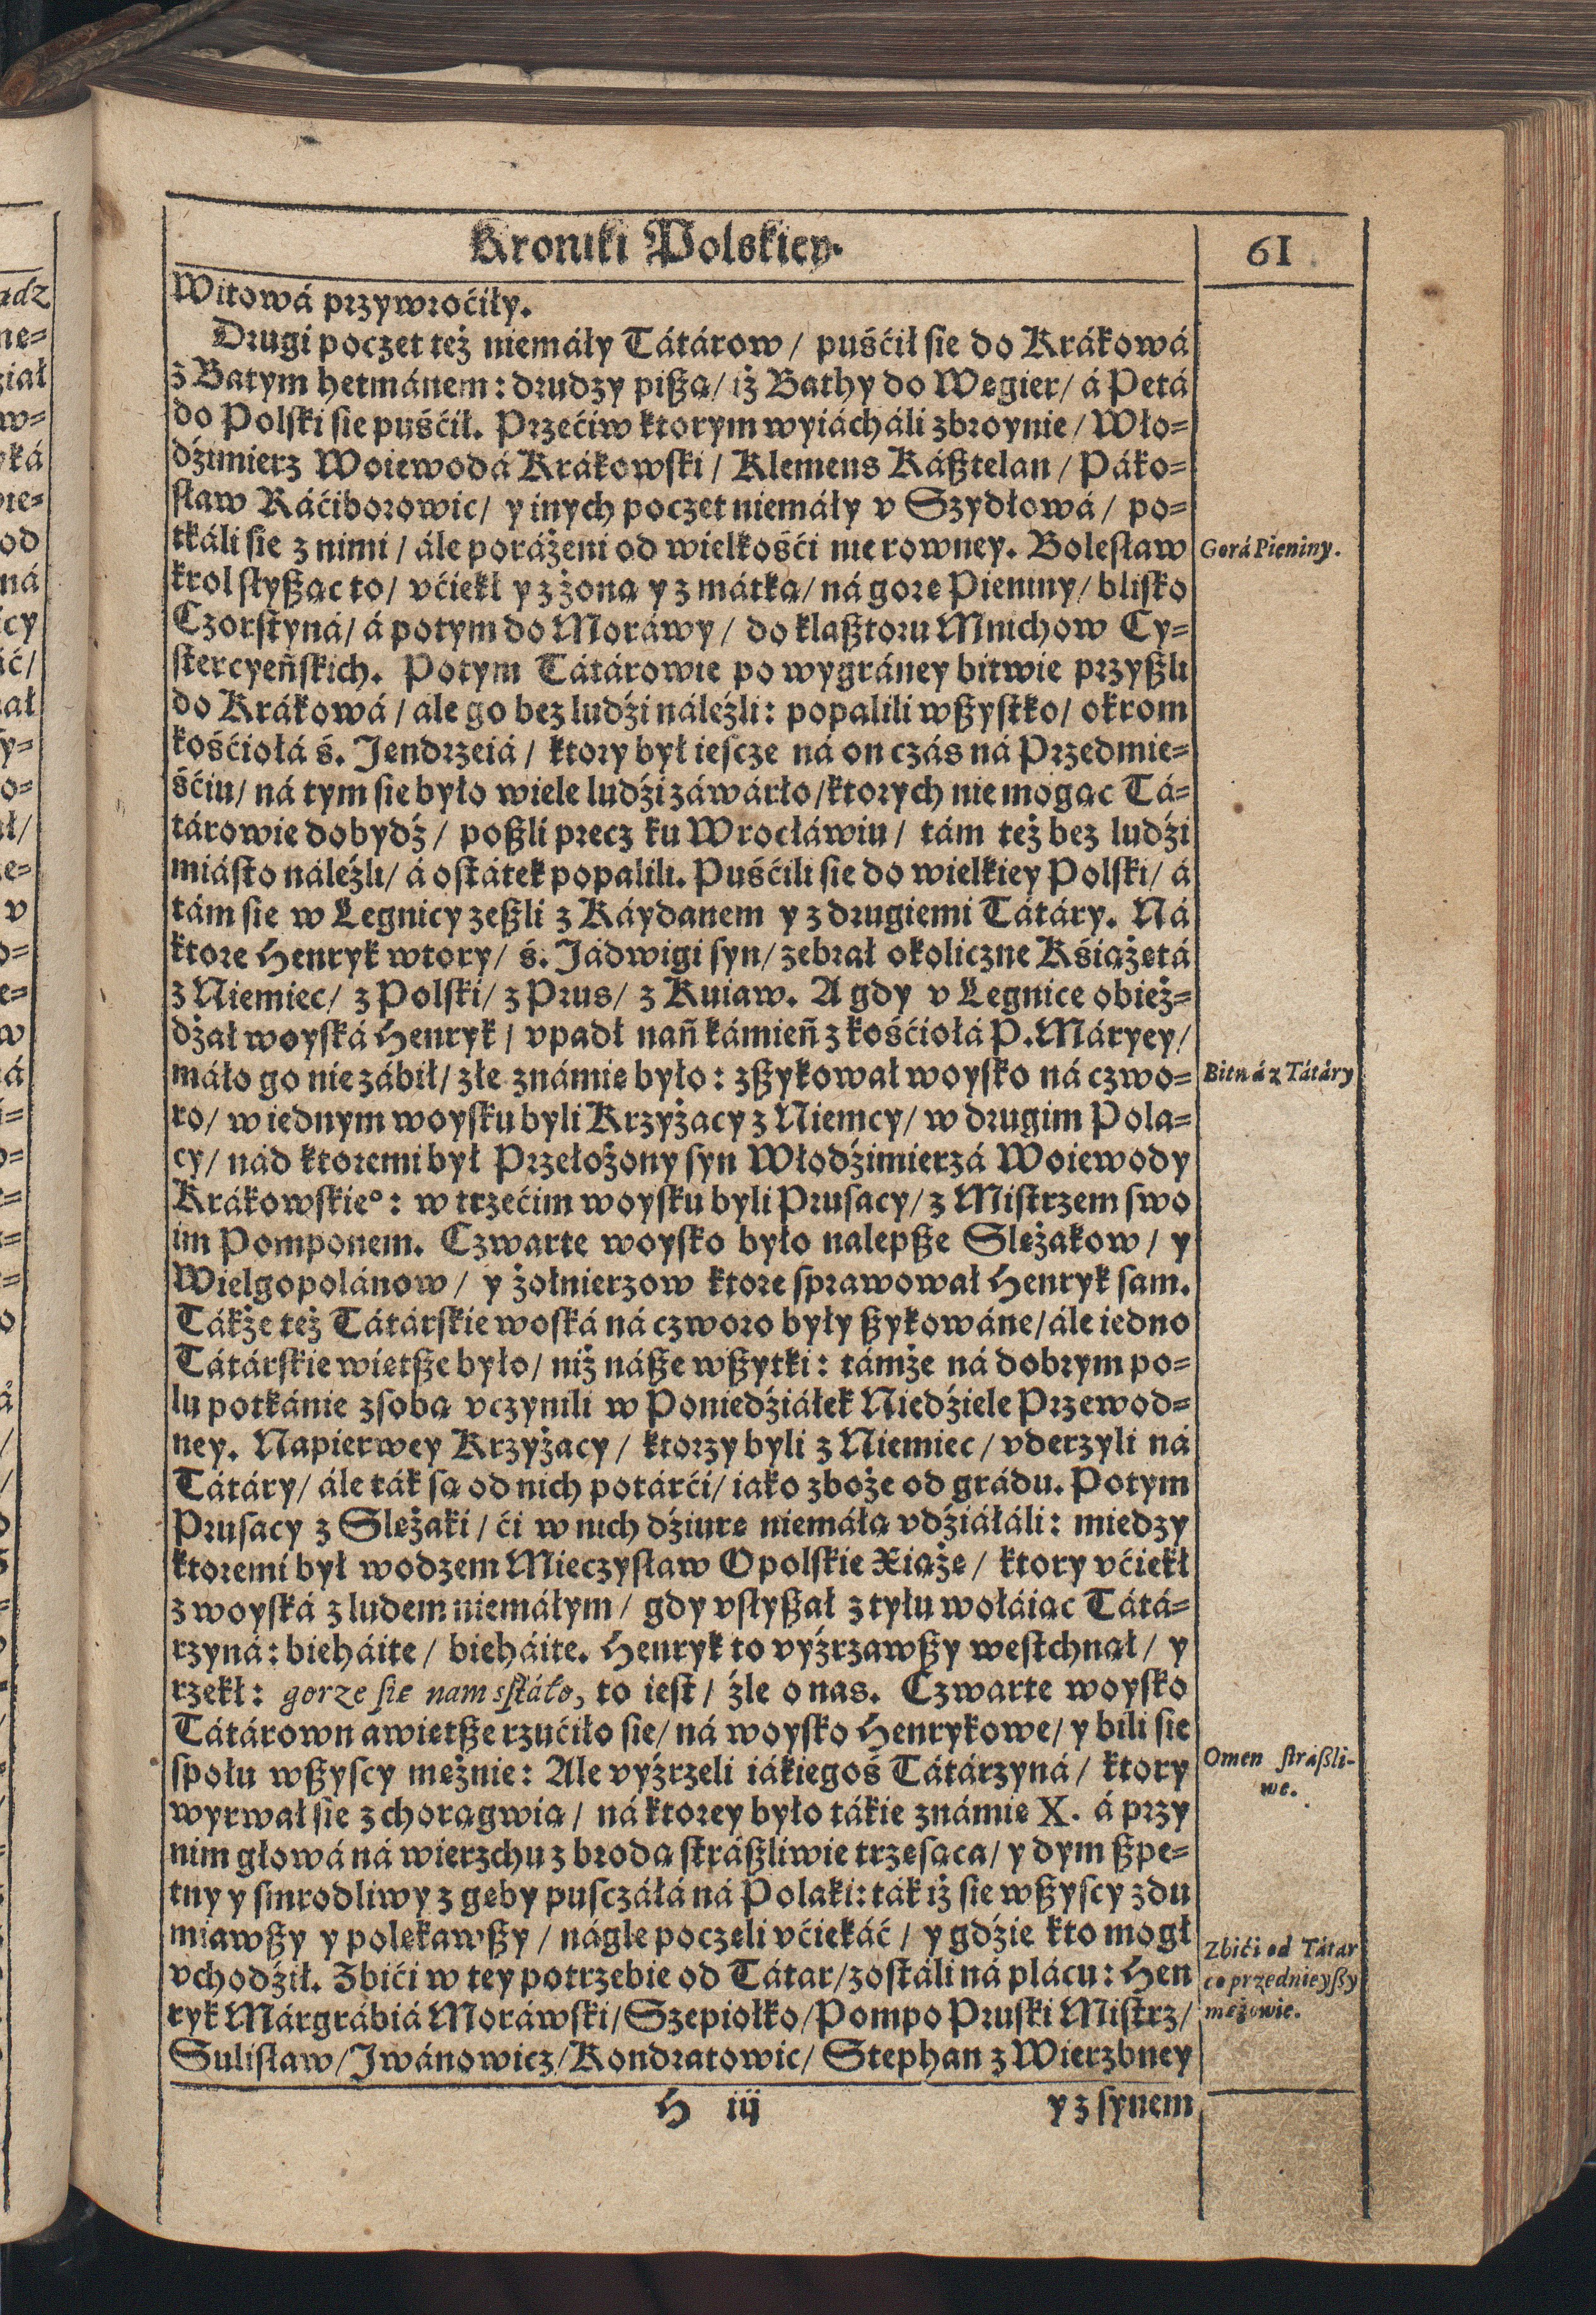 Kroniki Polskiey.
61
Witowá przywroćiły.
Drugi poczet też niemáły Tátárow / puśćił sie do Krákowá
z Batym hetmánem: drudzy pißą / iż Bathy do Węgier / á Petá
do Polski sie puśćił. Przećiw ktorym wyiácháli zbroynie / Wło-
dźimierz Woiewodá Krákowski / Klemens Káßtelan / Páko-
sław Ráćiborowic / y inych poczet niemáły v Szydłowá / po-
tkáli sie z nimi / ále poráżeni od wielkośći nie rowney. Bolesław
krol słyßąc to / vćiekł y z żoną y z mátką / ná gorę Pieniny / blisko
Czorstyná / á potym do Moráwy / do klaßtoru Mnichow Cy-
stercyeńskich. Potym Tátárowie po wygráney bitwie przyßli
do Krákowá / ale go bez ludźi náleźli: popalili wßystko / okrom
kośćiołá ś. Jendrzeiá / ktory był iescze ná on czás ná Przedmie-
śćiu / ná tym sie było wiele ludźi záwárło / ktorych nie mogąc Tá-
tárowie dobydź / poßli precz ku Wrocłáwiu / tám też bez ludźi
miásto náleźli / á ostátek popalili. Puśćili sie do wielkiey Polski / á
tám sie w Legnicy zeßli z Káydanem y z drugiemi Tátáry. Ná
ktore Henryk wtory / ś. Jádwigi syn / zebrał okoliczne Kśiążętá
z Niemiec / z Polski / z Prus / z Kuiaw. A gdy v Legnice obież-
dżał woyská Henryk / vpadł nań kámień z kośćiołá P. Máryey /
máło go nie zábił / złe známię było: zßykował woysko ná czwo-
ro / w iednym woysku byli Krzyżacy z Niemcy / w drugim Pola-
cy / nád ktoremi był Przełożony syn Włodźimierzá Woiewody
Krákowskieº: w trzećim woysku byli Prusacy / z Mistrzem swo
im Pomponem. Czwarte woysko było nalepße Slężakow / y
Wielgopolánow / y żołnierzow ktore sprawował Henryk sam.
Tákże też Tátárskie woská ná czworo były ßykowáne / ále iedno
Tátárskie wietße było / niż náße wßytki: támże ná dobrym po-
lu potkánie z sobą vczynili w Poniedźiáłek Niedźiele Przewod-
ney. Napierwey Krzyżacy / ktorzy byli z Niemiec / vderzyli ná
Tátáry / ále ták są od nich potárći / iako zboże od grádu. Potym
Prusacy z Slężaki / ći w nich dźiurę niemáłą vdźiáłáli: miedzy
ktoremi był wodzem Mieczysław Opolskie Xiążę / ktory vćiekł
z woyská z ludem niemáłym / gdy vsłyßał z tyłu wołáiąc Tátá-
rzyná: bieháite / bieháite. Henryk to vyźrzawßy westchnął / y
rzekł: gorze sie nam sstáło, to iest / źle o nas. Czwarte woysko
Tátárown awietße rzućiło sie / ná woysko Henrykowe / y bili sie
społu wßyscy mężnie: Ale vyźrzeli iákiegoś Tátárzyná / ktory
wyrwał sie z chorągwią / ná ktorey było tákie známię X. á przy
nim głowá ná wierzchu z brodą stráßliwie trzęsącą / y dym ßpe-
tny y smrodliwy z gęby pusczáłá ná Polaki: ták iż sie wßyscy zdu
miawßy y polękawßy / nágle poczęli vćiekáć / y gdźie kto mogł
vchodźił. Zbići w tey potrzebie od Tátar / zostáli ná plácu: Hen
ryk Márgrábiá Moráwski / Szepiołko / Pompo Pruski Mistrz /
Sulisław / Iwánowicz / Kondratowic / Stephan z Wierzbney
H iij
y z synem
Gorá Pieniny.
Bitwá z Tátáry
Omen stráßli-
we.
Zbići od Tátar
co przednieyßy
mężowie.